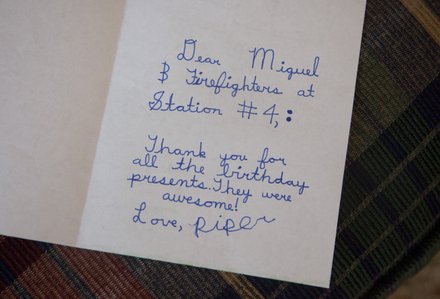 Dear Miguel
& Firefighters at
Station #4,:
Thank you for
all the birthday
presents. They were
awesome!
Love, Piper